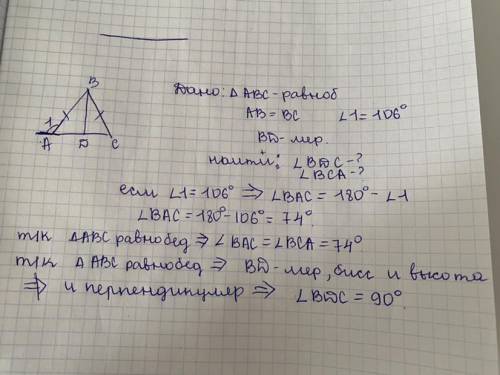 B
1
A D C
Дано: Δ ABC - равноб
AB = BC ∠1 = 106°
BD - мер.
найти: ∠BDC - ?
∠BCA - ?
есм ∠1 = 106° ⇒ ∠BAC = 180° - ∠1
∠BAC = 180° - 106° = 74°.
т/к ΔABC равнобед ⇒ ∠BAC = ∠BCA = 74°
т/к Δ ABC равнобед ⇒ BD - мер, бисс и высота
⇒ и перпендикумер ⇒ ∠BDC = 90°